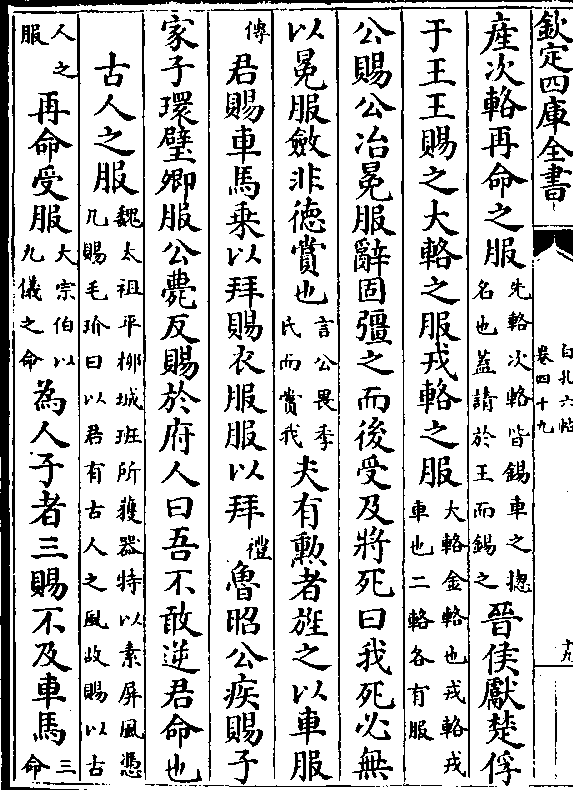 欽定四庫全書
白孔六帖
卷四十九
十九
産次輅再命之服先輅次輅皆錫車之揔名也蓋請於王而錫之晉侯獻楚俘
于王王賜之大輅之服戎輅之服大輅金輅也戎輅戎車也二輅各有服
公賜公冶冕服辭固彊之而後受及將死曰我死必無
以冕服斂非德賞也言公畏季氏而賞我夫有勲者旌之以車服
傳君賜車馬乗以拜賜衣服服以拜禮魯昭公疾賜子
家子環璧卿服公薨反賜於府人曰吾不敢逆君命也
古人之服魏太祖平栁城班所獲器特以素屏風憑几賜毛玠曰以君有古人之風故賜以古
人之服再命受服大宗伯以九儀之命為人子者三賜不及車馬三命